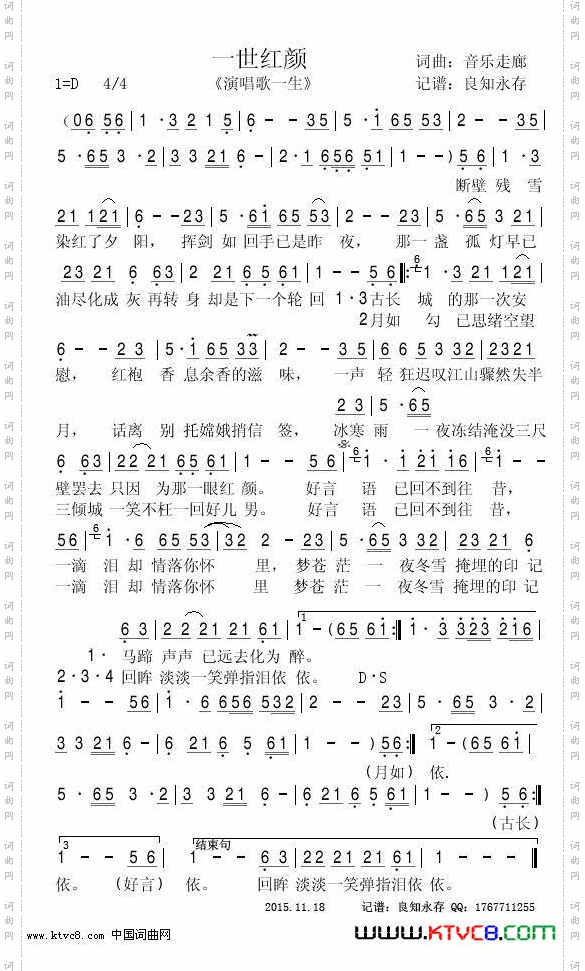 一世红颜
词曲：音乐走廊
1=D 4/4 《演唱歌一生》 记谱：良知永存
（06 56 | 1 ·3 2 1 5 | 6 - - 35 | 5 ·1 65 53 | 2 - - 35 |
5 ·65 3 ·2 | 3 3 21 6 - | 2·1 656 51 | 1 - - ) 5 6 | 1 ·3
断壁 残 雪
21 121 | 6 - - 23 | 5 ·61 65 53 | 2 - - 23 | 5 ·65 3 21
染红了夕 阳， 挥剑 如 回手已是昨 夜， 那一 盏 孤 灯早已
23 21 6 63 | 2 21 6 5 61 | 1 - - 56 :‖: 6 1 ·3 21 121 |
油尽化成 灰 再转 身 却是下一个轮 回 1·3古长 城 的那一次安
2月如 勾 已思绪空望
6 - - 2 3 | 5·1 65 33 | 2 - - 35 | 6 6 5 3 32 | 2321
慰， 红袍 香 息余香的滋 味， 一声 轻 狂迟叹江山骤然失半
2 3 | 5 ·65
月， 话离 别 托嫦娥捎信 签， 冰寒 雨 一 夜冻结淹没三尺
6 63 | 22 21 65 61 | 1 - - 56 | 6 1 · 1 21 16 | 6 1 - -
壁罢去 只因 为那一眼红 颜。 好言 语 已回不到往 昔，
三倾城 一笑不枉一回好儿 男。 好言 语 已回不到往 昔，
56 | 6 1 ·6 65 53 | 32 - - 23 | 5 ·65 3 32 | 23 21 6
一滴 泪 却 情落你怀 里， 梦苍 茫 一 夜冬雪 掩埋的印记
一滴 泪 却 情落你怀 里 梦苍 茫 一 夜冬雪 掩埋的印记
6 3 | 2 2 21 21 61 | 1 1 - (65 61 :‖ 1 · 3 323 216 |
1· 马蹄 声声 已远去化为 醉。
2·3·4 回眸 淡淡一笑弹指泪依 依。 D·S
1 - - 56 | 1 · 6 656 532 | 2 - - 23 | 5 ·65 3 ·2 |
3 3 21 6 - | 6 2 6 5 61 | 1 - - ) 56 :‖ 2 1 - (65 61 |
(月如) 依.
5 ·65 3 ·2 | 3 3 21 6 - | 6 21 6 5 61 | 1 - - ) 5 6 :‖
(古长)
3 结束句
1 - - 5 6 | 1 - - 63 | 22 21 21 61 | 1 - - ‖
依。 (好言) 依。 回眸 淡淡一笑弹指泪依 依。
2015.11.18 记谱：良知永存 QQ：1767711255
www.ktvc8.com 中国词曲网 www.KTVC8.com
词曲网